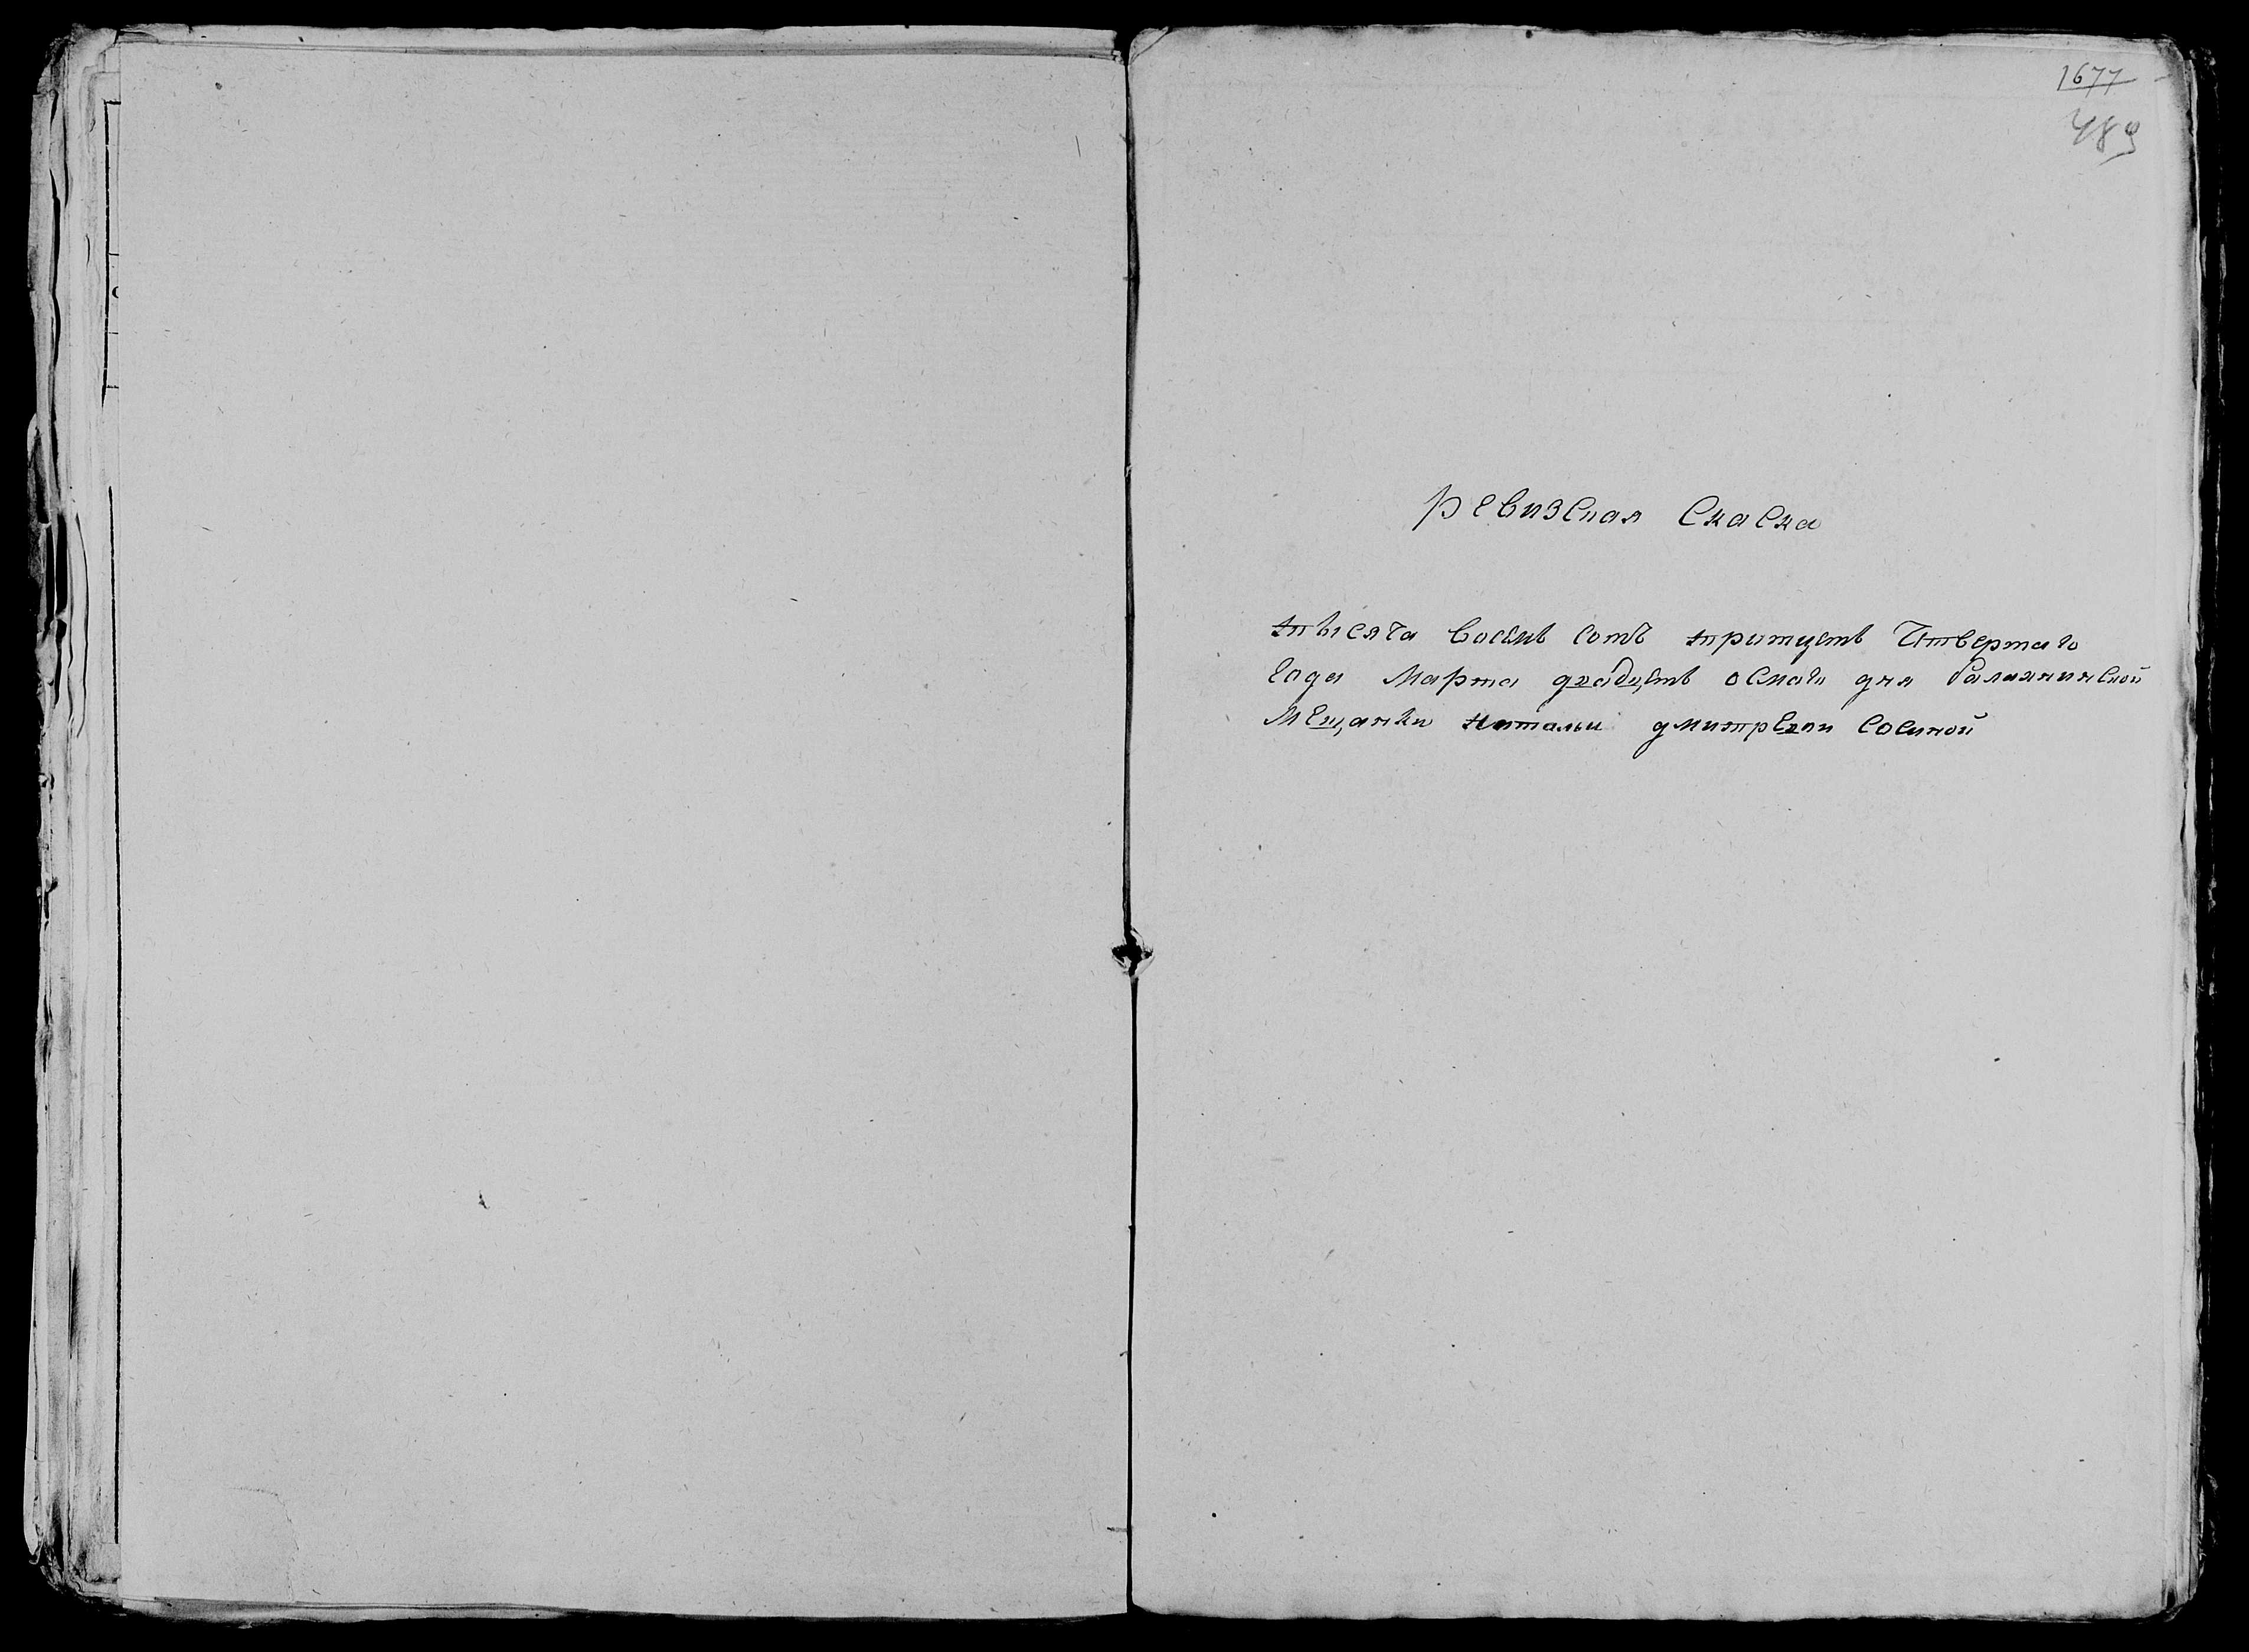 1677
489
Ревизская Скаска
тысяча восемь сотъ тритцеть Четвертаго
года Марта двадцеть осмаго дня балахнинской
Мещанки Натальи дмитревои Сосиной